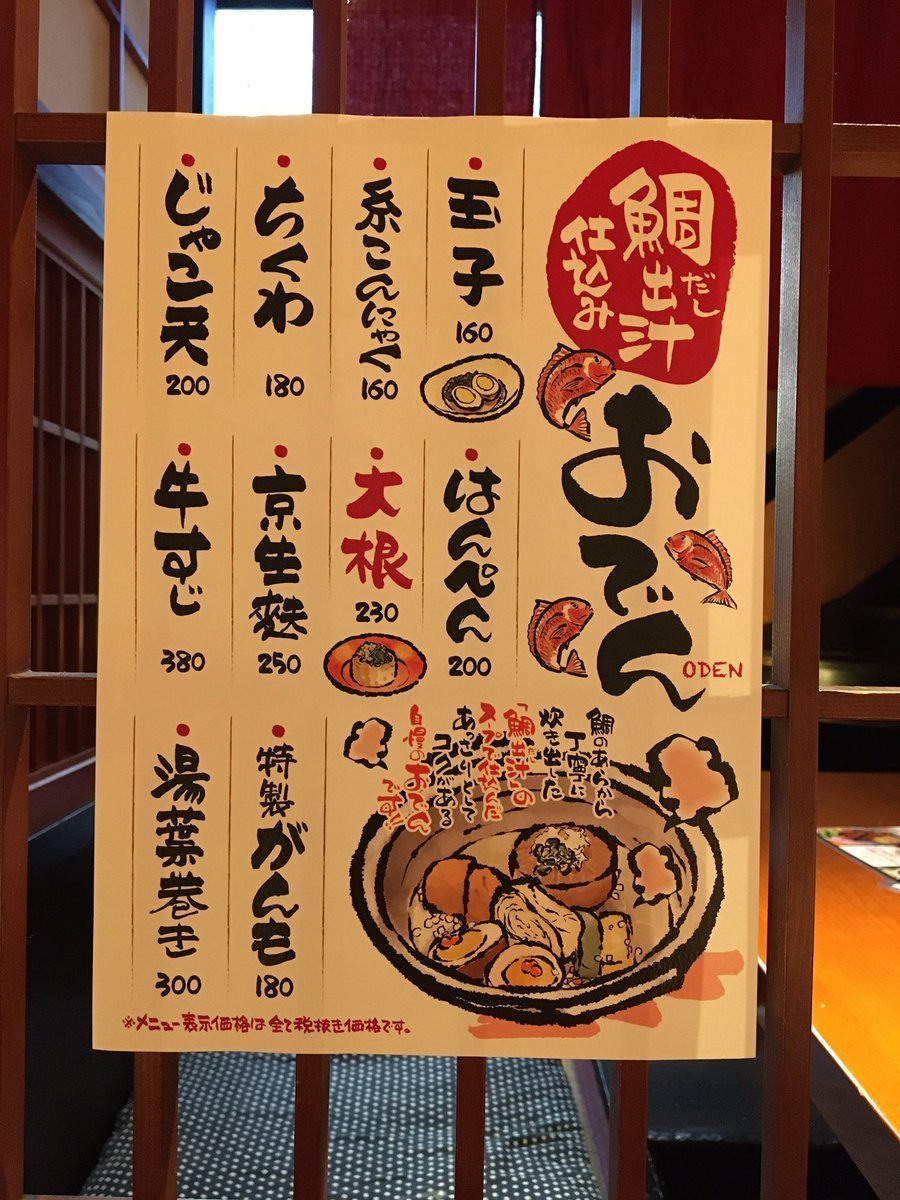 鯛出汁
だし
仕込み
おでん
ODEN
玉子
160
糸こんにゃく
160
ちくわ
180
じゃこ天
200
はんぺん
200
大根
230
京生麩
250
牛すじ
380
鯛のあらから
丁寧に
炊き出した
「鯛出汁」の
だし
スープで仕込んだ
あっさりとして
コクがある
自慢のおでん
です!!
特製がんも
180
湯葉巻き
300
※メニュー表示価格は全て税抜き価格です。